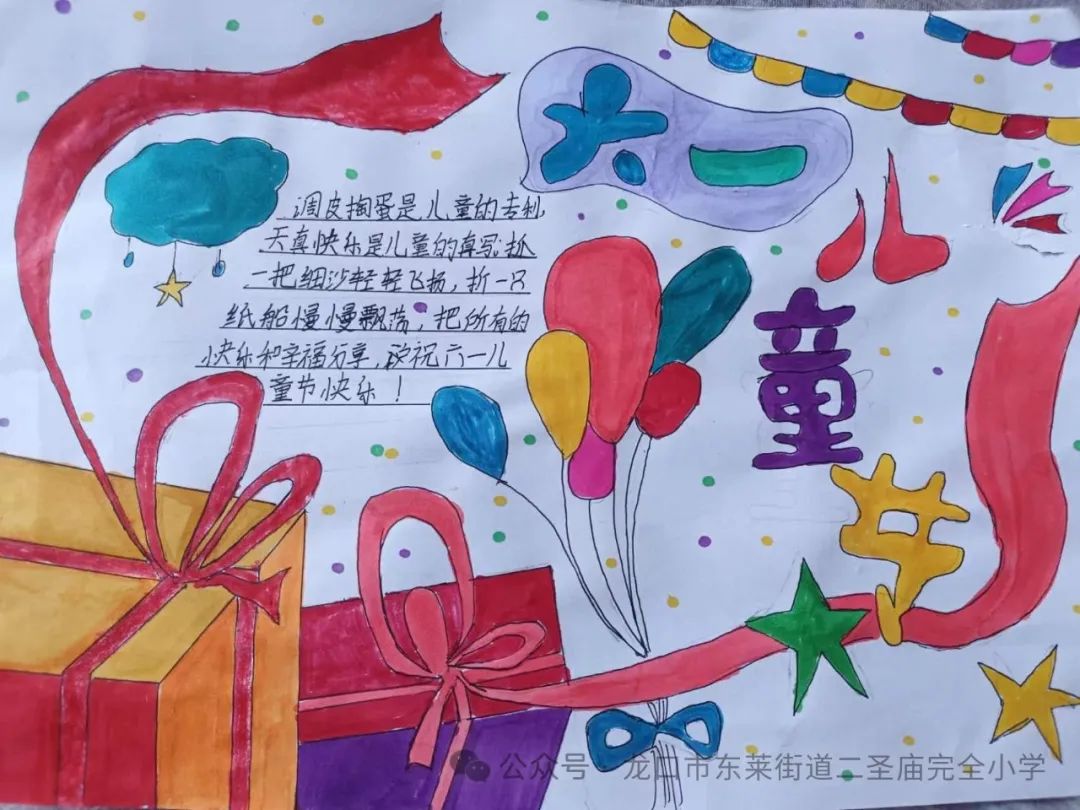 六一
儿
童
节
调皮掏蛋是儿童的专利,
天真快乐是儿童的真写;抓
一把细沙轻轻飞扬,折一只
纸船慢慢飘荡,把所有的
快乐和幸福分享,说祝六一儿
童节快乐!
公众号 龙口市东莱街道二圣庙完全小学